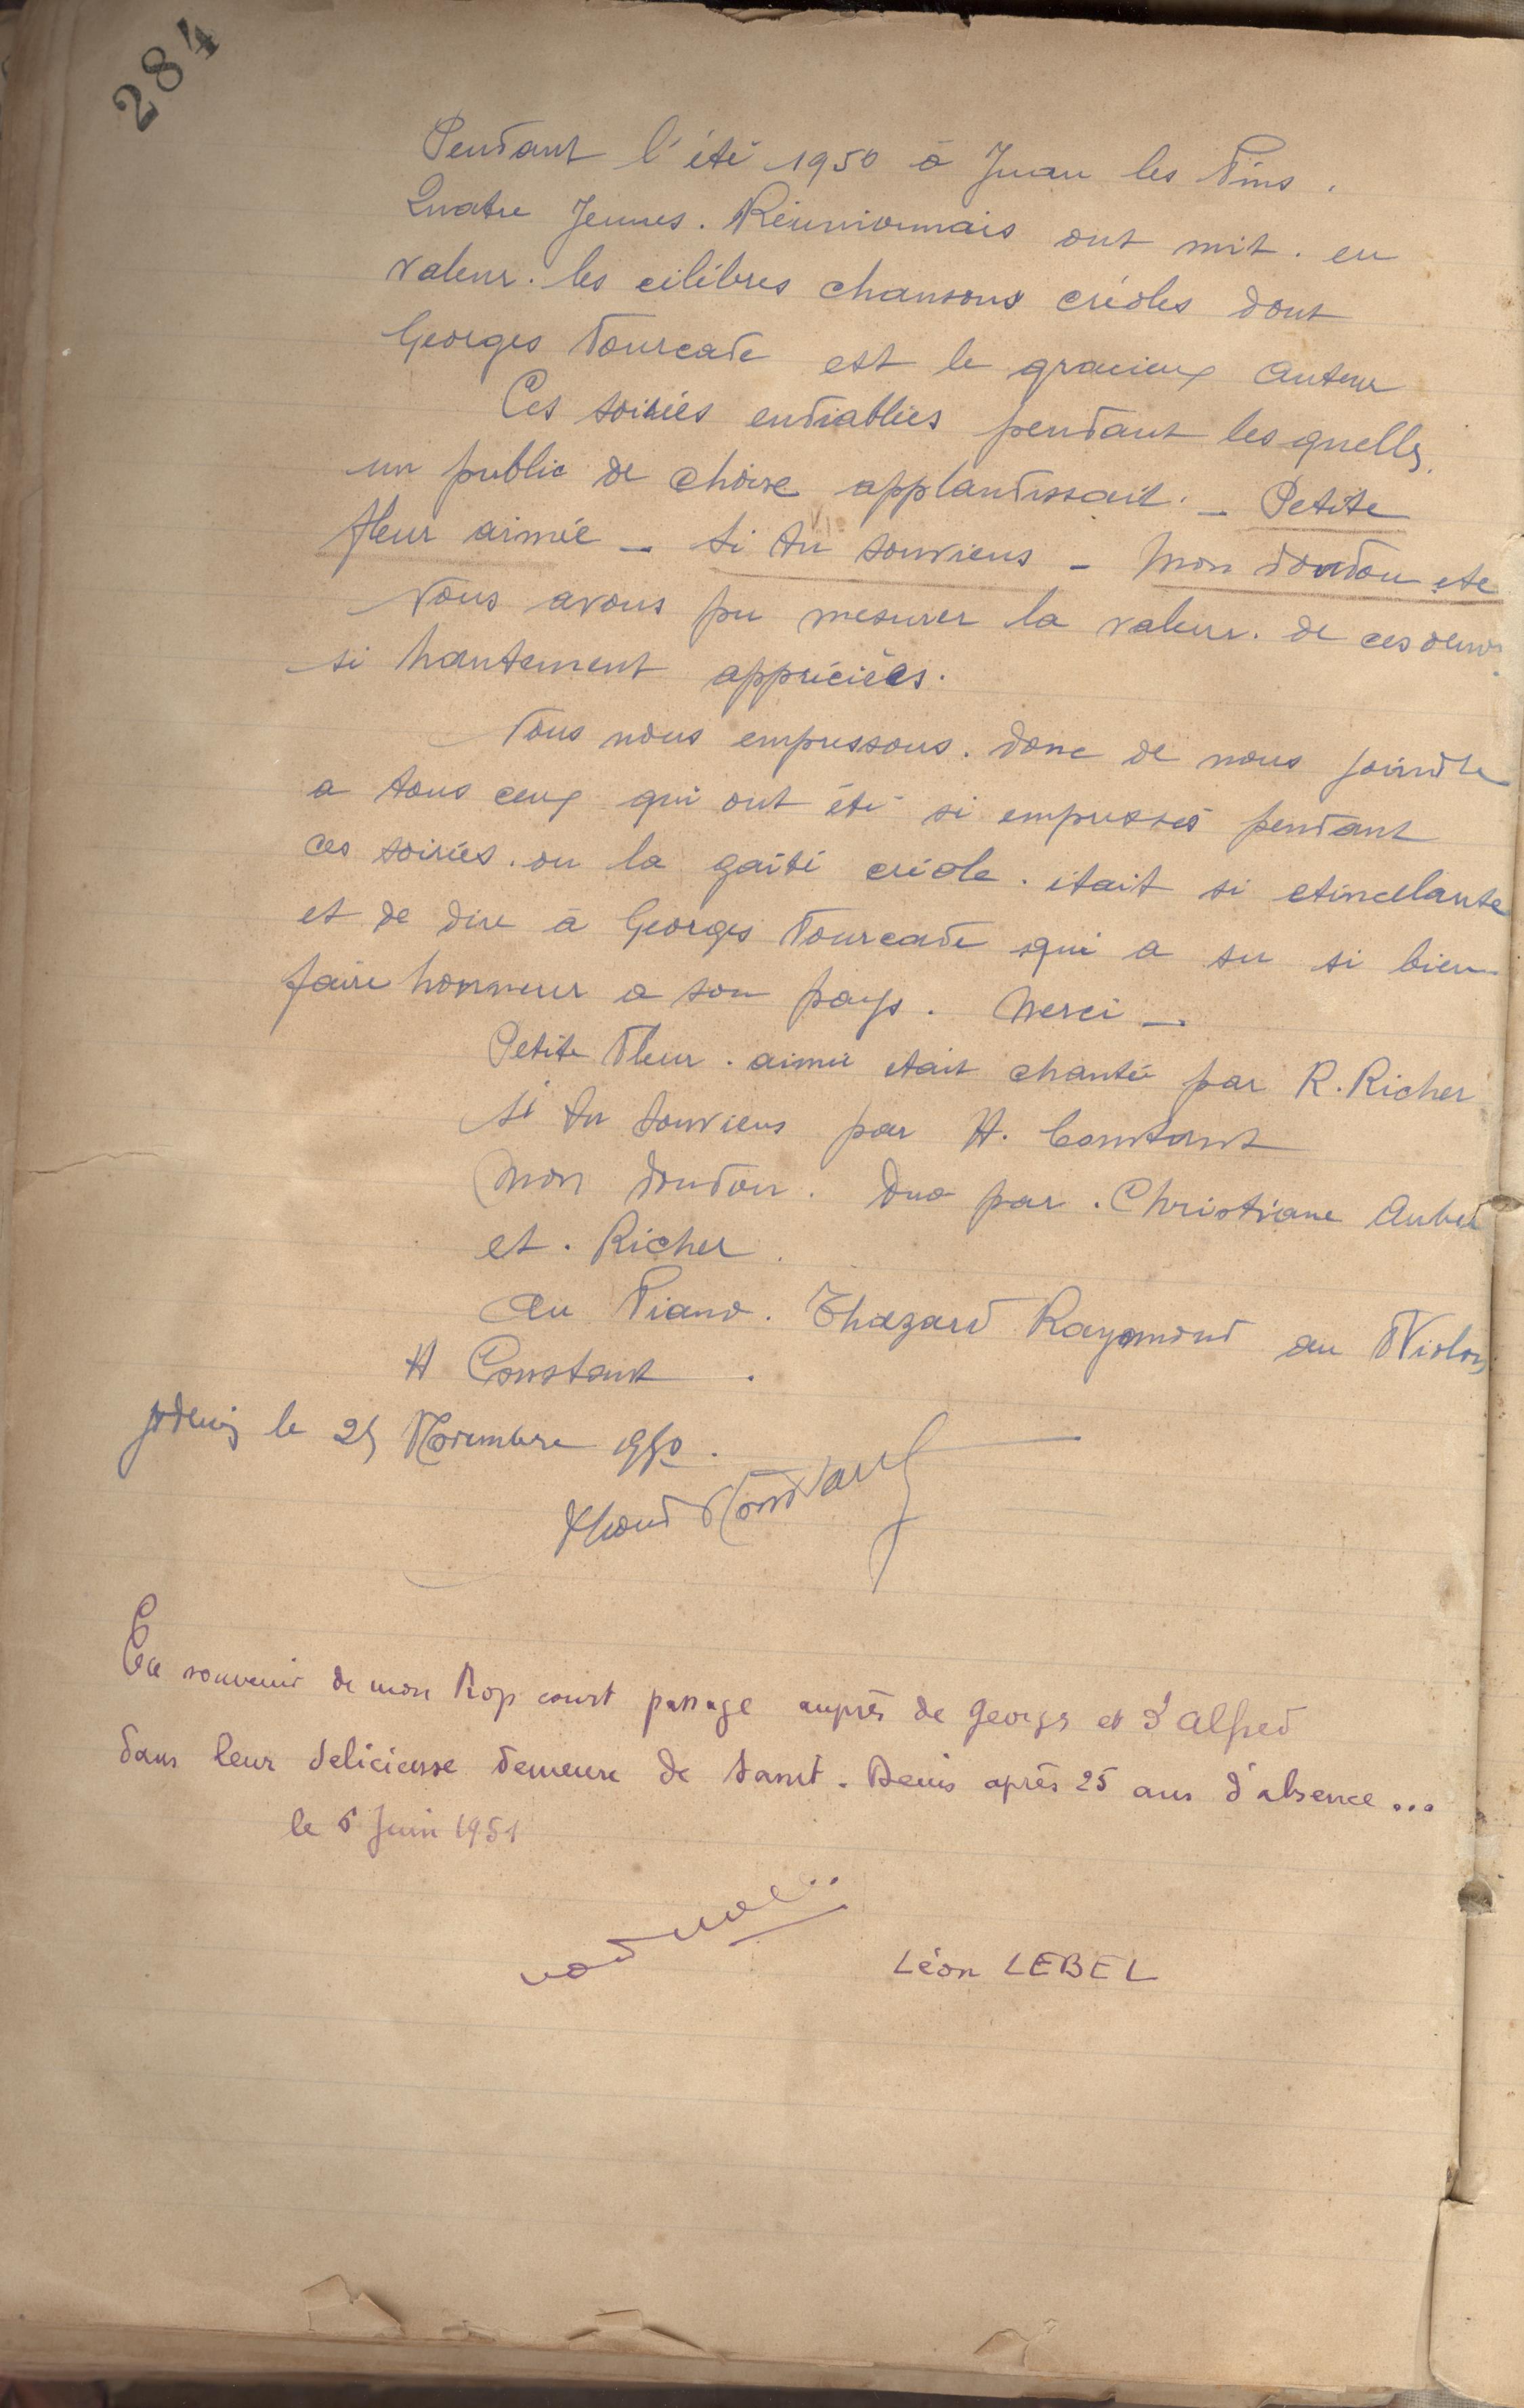 284
Pendant l'été 1950 à Juan les Pins.
Quatre Jeunes. Réunionnais ont mit. en
valeur. les célèbres chansons créoles dont
Georges Fourcade est le gracieux auteur
Ces soirées endiablées pendant les quelles
un public de choix applaudissait. — Petite
fleur aimée — Si tu souviens — Mon doudou etc
Nous avons pu mesurer la valeur. de ces
si hautement appréciées.
Nous nous empressons. donc de nous joindre
a tous ceux qui ont été si empressés pendant
ces soirées. ou la gaité créole. était si etincelante
et de dire à Georges Fourcade qui a su si bien
faire honneur a son pays. Merci —
Petite Fleur. aimée etait chantée par R. Richer
Si tu souviens par H. Constant
Mon doudou. Duo par. Christiane Auber
et. Richer.
Au Piano. Thazard Raymond au Violon
H Constant.
le 25 Novembre 1950.
Constant
En souvenir de mon trop court passage auprès de Georges et d'Alfred
dans leur delicieuse demeure de Saint-Denis après 25 ans d'absence...
le 6 Juin 1951
Léon LEBEL